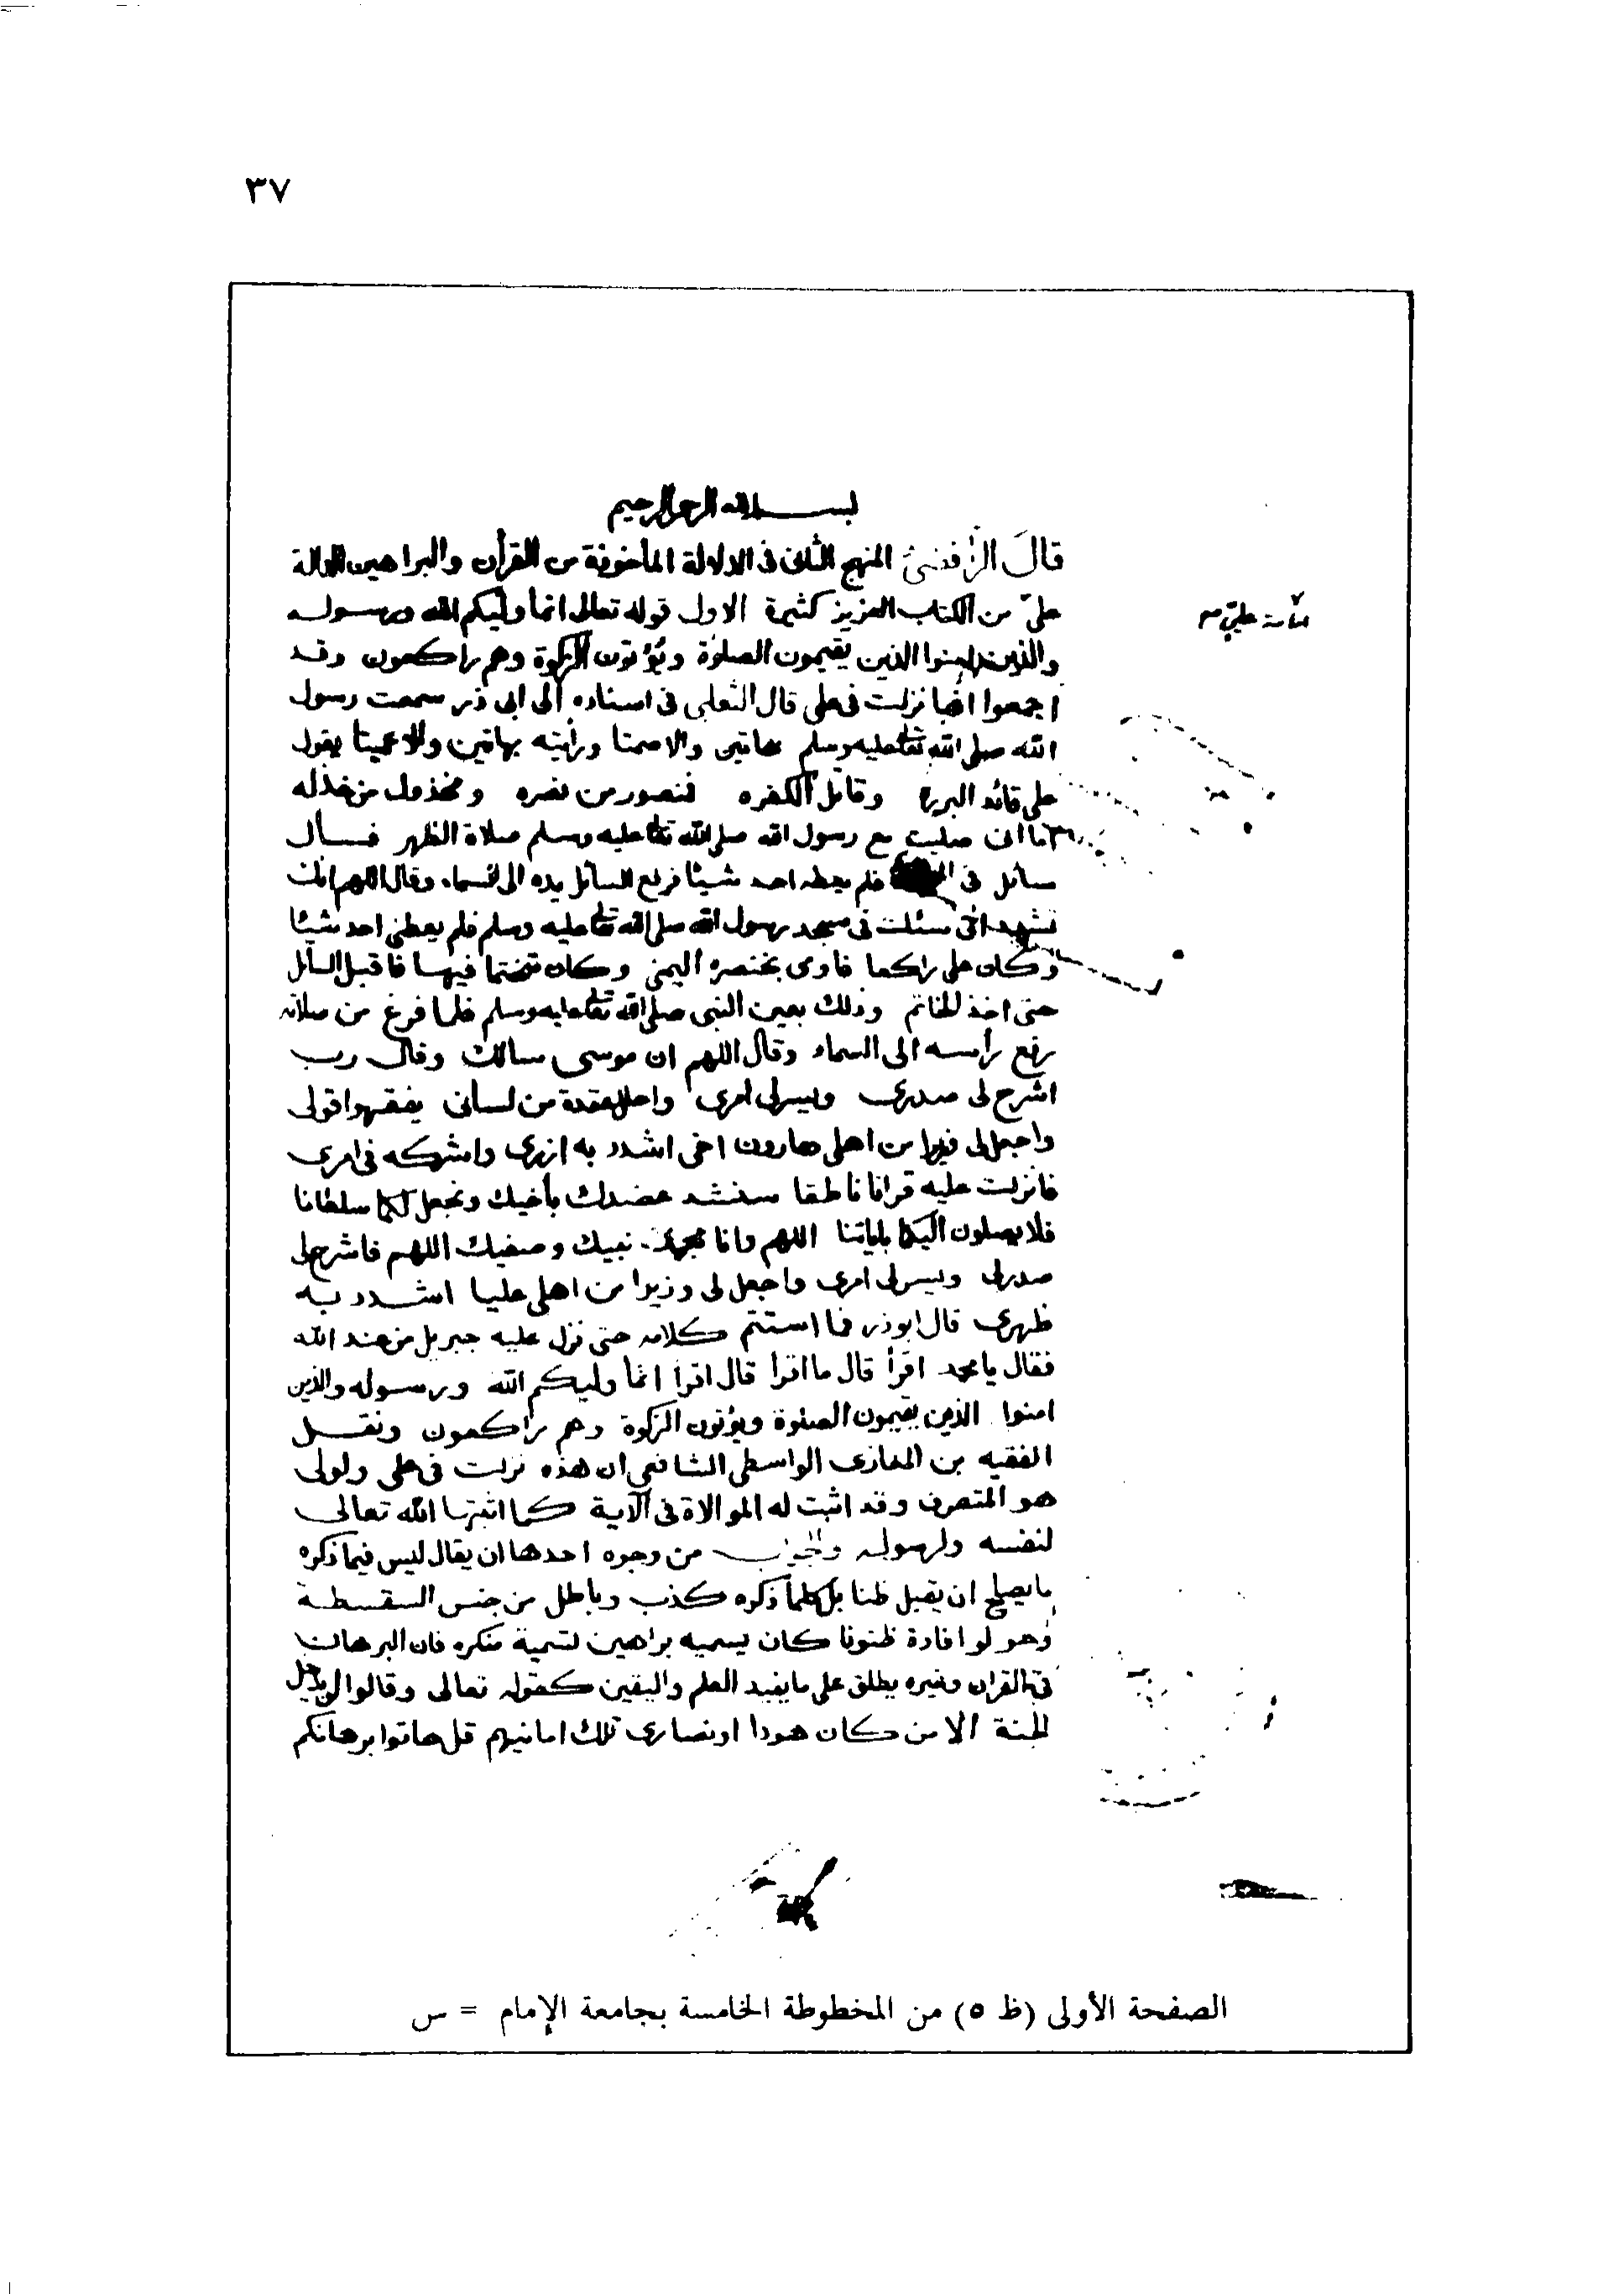 ٣٧
بسم الله الرحمن الرحيم
قال الرافضي المنهج الثانى فى الادلة المأخوذة من القرأن والبراهين الدالة
على من الكتاب العزيز كثيرة الاول قوله تعالى انما وليكم الله ورسوله
امامة علي
والذين امنوا الذين يقيمون الصلوة ويؤتون الزكوة وهم راكعون وقد
اجمعوا انها نزلت فى على قال الثعلبى فى اسناده الى ابى ذر سمعت رسول
الله صلى الله تعالى عليه وسلم بهاتين والا صمتا ورأيته بهاتين والا عميتا يقول
على قائد البررة وقاتل الكفره فنصور من نصره ومخذول من خذله
اما انى صليت مع رسول الله صلى الله تعالى عليه وسلم صلاة الظهر فسأل
سائل فى فلم يعطه احد شيئا فرفع السائل يده الى السماء وقال اللهم انك
تشهد انى سئلت فى مسجد رسول الله صلى الله تعالى عليه وسلم فلم يعطنى احد شيئا
وكان على راكعا فاومى بخنصره اليمنى وكان متختما فيها فاقبل السائل
حتى اخذ الخاتم وذلك بعين النبى صلى الله تعالى عليه وسلم فلما فرغ من صلاته
رفع رأسه الى السماء وقال اللهم ان موسى سالك وقال رب
اشرح لى صدرى ويسر لى امرى واحلل عقدة من لسانى يفقهوا قولى
واجعل لى وزيرا من اهلى هارون اخى اشدد به ازرى واشركه فى امرى
فانزلت عليه قرانا ناطقا سنشد عضدك بأخيك ونجعل لكما سلطانا
فلا يصلون اليكما باياتنا اللهم وانا محمد نبيك وصفيك اللهم فاشرح لى
صدرى ويسر لى امرى واجعل لى وزيرا من اهلى عليا اشدد به
ظهرى قال ابوذر فما استتم كلامه حتى نزل عليه جبريل من عند الله
فقال يا محمد اقرأ قال ما اقرا قال اقرا انما وليكم الله ورسوله والذين
امنوا الذين يقيمون الصلوة ويؤتون الزكوة وهم راكعون ونقل
الفقيه بن المغازى الواسطى الشافعى ان هذه نزلت فى على ولولى
هو المتصرف وقد اثبت له الموالاة فى الآية كما اثبتها الله تعالى
لنفسه ولرسوله والجواب من وجوه احدها ان يقال ليس فيما ذكره
ما يصلح ان يقبل ظنا بل كلما ذكره كذب وباطل من جنس السفسطة
وهو لو افادة ظنونا كان يسميه براهين تسمية منكره فان البرهان
فى القران وغيره يطلق على ما يفيد العلم واليقين كقوله تعالى وقالوا لن يدخل
الجنة الا من كان هودا او نصارى تلك امانيهم قل هاتوا برهانكم
الصفحة الأولى (ظ ٥) من المخطوطة الخامسة بجامعة الإمام = س